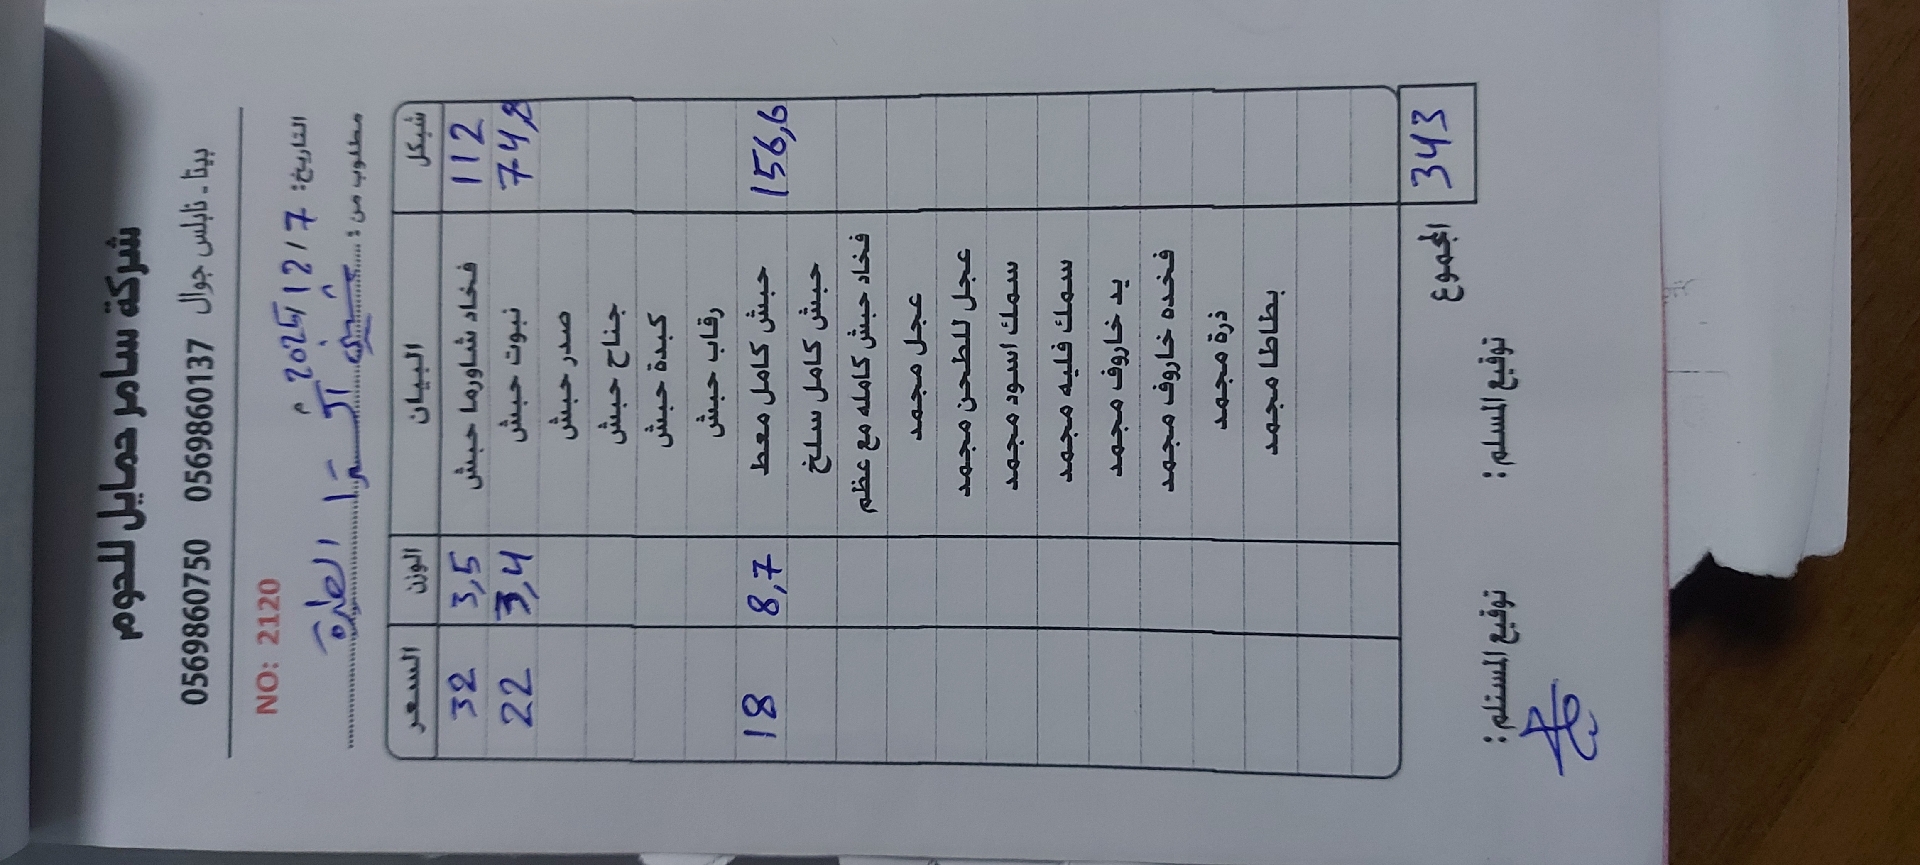 شركة سامر حمايل للحوم
بيتا - نابلس جوال 0569860137 0569860750
التاريخ: 2025/12/7م NO: 2120
مطلوب من:
السعر الوزن البيان شيكل
32 3,5 فخاد شاورما حبش 112
22 3,4 نبوت حبش 74,8
صدر حبش
جناح حبش
كبدة حبش
رقاب حبش
18 8,7 حبش كامل معط 156,6
حبش كامل سلخ
فخاد حبش كامله مع عظم
عجل مجمد
عجل للطحن مجمد
سمك اسود مجمد
سمك فليه مجمد
يد خاروف مجمد
فخده خاروف مجمد
ذرة مجمد
بطاطا مجمد
المجموع 343
توقيع المستلم: توقيع المسلم: